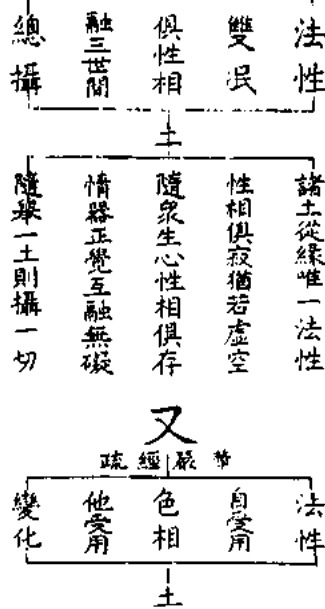 法性
雙泯
俱性相
融三世間
總攝
土
諸土從緣唯一法性
性相俱寂猶若虛空
隨眾生心性相俱存
情器正覺互融無礙
隨舉一土則攝一切
又
華嚴經疏
法性
自受用
色相
他受用
變化
土